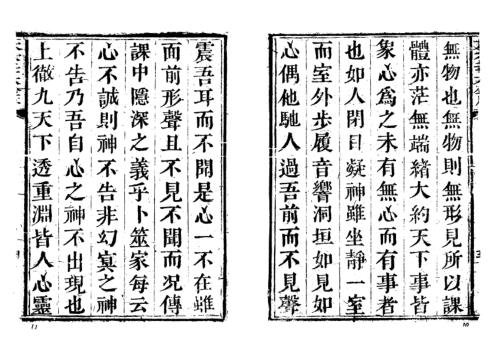 無物也無物則無形見所以課
體亦茫無端緒大約天下事皆
象心為之未有無心而有事者
也如人閉目凝神雖坐靜一室
而室外步履音響洞垣如見如
心偶他馳人過吾前而不見聲
震吾耳而不聞是心一不在雖
而前形聲且不見不聞而況傳
課中隱深之義乎卜筮家每云
心不誠則神不告非幻㝠之神
不告乃吾自心之神不出現也
上徹九天下透重淵皆人心靈
10
11